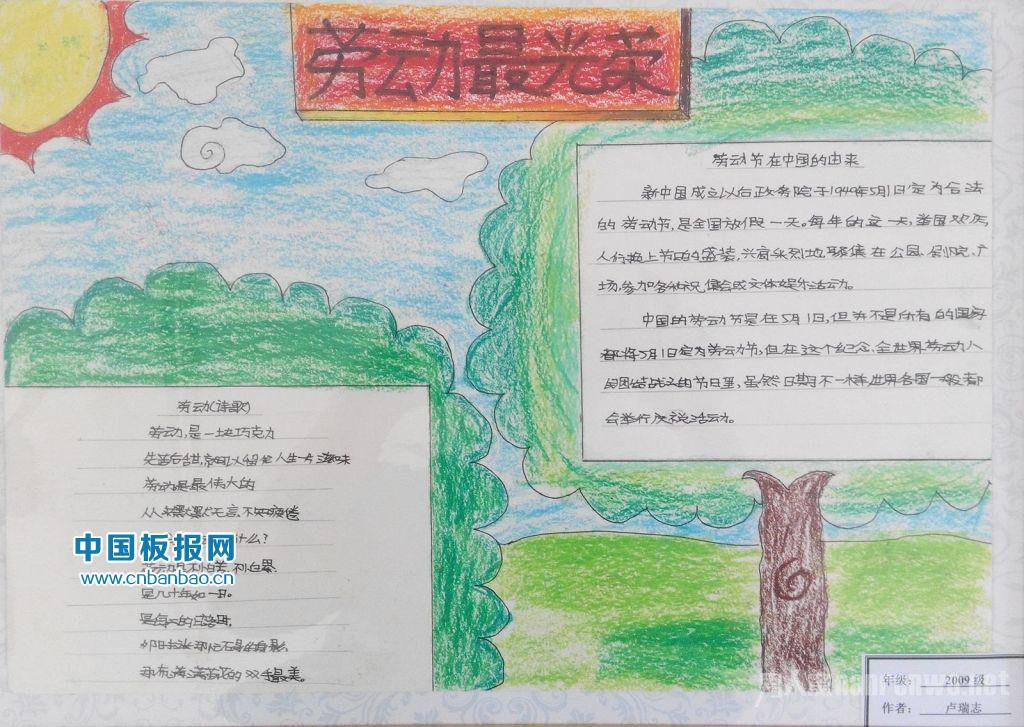 劳动最光荣
劳动节在中国的由来
新中国成立以后政务院于1949年5月1日定为合法
的劳动节,是全国放假一天。每年的这一天,举国欢庆,
人们换上节日的盛装,兴高采烈地聚集在公园、剧院、广
场,参加各种庆祝集会或文体娱乐活动。
中国的劳动节是在5月1日,但并不是所有的国家
都将5月1日定为劳动节,但在这个纪念、全世界劳动人
民团结战斗的节日里,虽然日期不一样,世界各国一般都
会举行庆祝活动。
劳动(诗歌)
劳动,是一块巧克力
先苦后甜,
人生一片滋味
劳动是最伟大的
从来默默无言,不知疲倦
什么?
劳动
是几十年如一日。
是每天的日
双手最美。
中国板报网
www.cnbanbao.cn
kanrenwo.net
年级: 2009级
作者: 卢瑞志